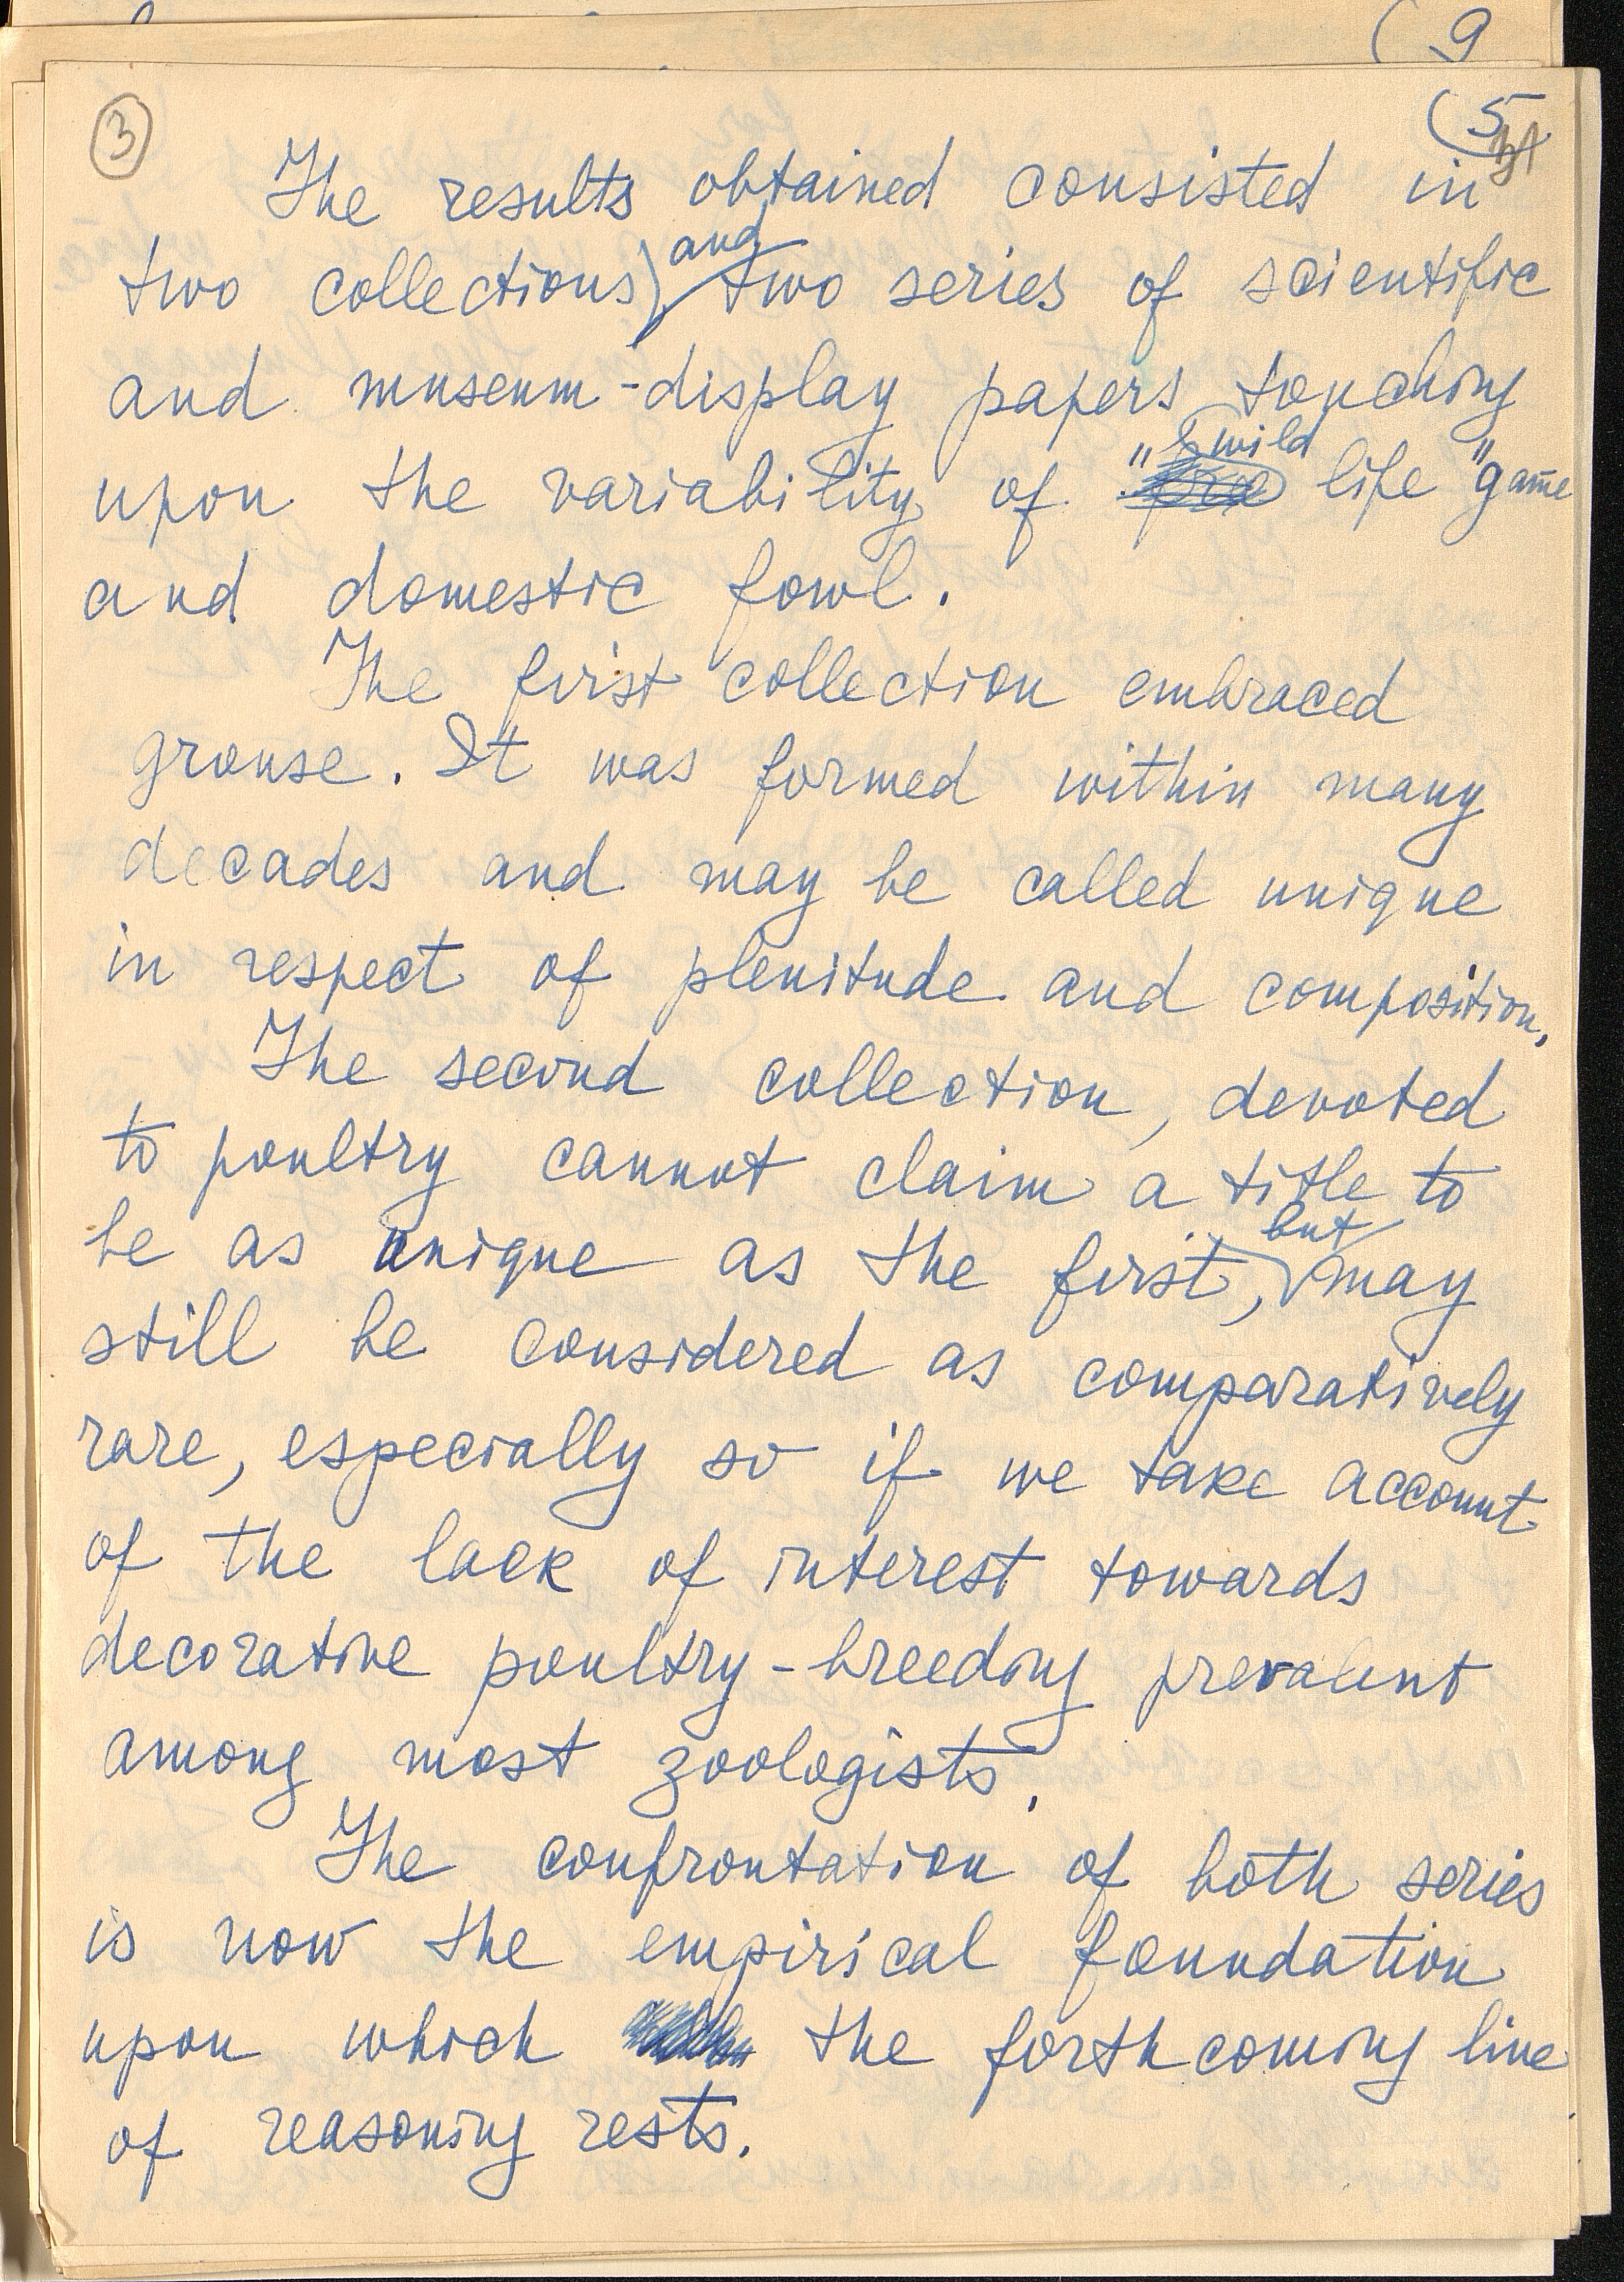 ( 9
3
( 5
31
The results obtained consisted in
two collections, and two series of scientific
and museum-display papers touching
upon the variability of "wild life" game
and domestic fowl.
The first collection embraced
grouse. It was formed within many
decades and may be called unique
in respect of plenitude and composition.
The second collection, devoted
to poultry cannot claim a title to
be as unique as the first, but may
still be considered as comparatively
rare, especially so if we take account
of the lack of interest towards
decorative poultry-breeding prevalent
among most zoologists.
The confrontation of both series
is now the empirical foundation
upon which the forthcoming line
of reasoning rests.